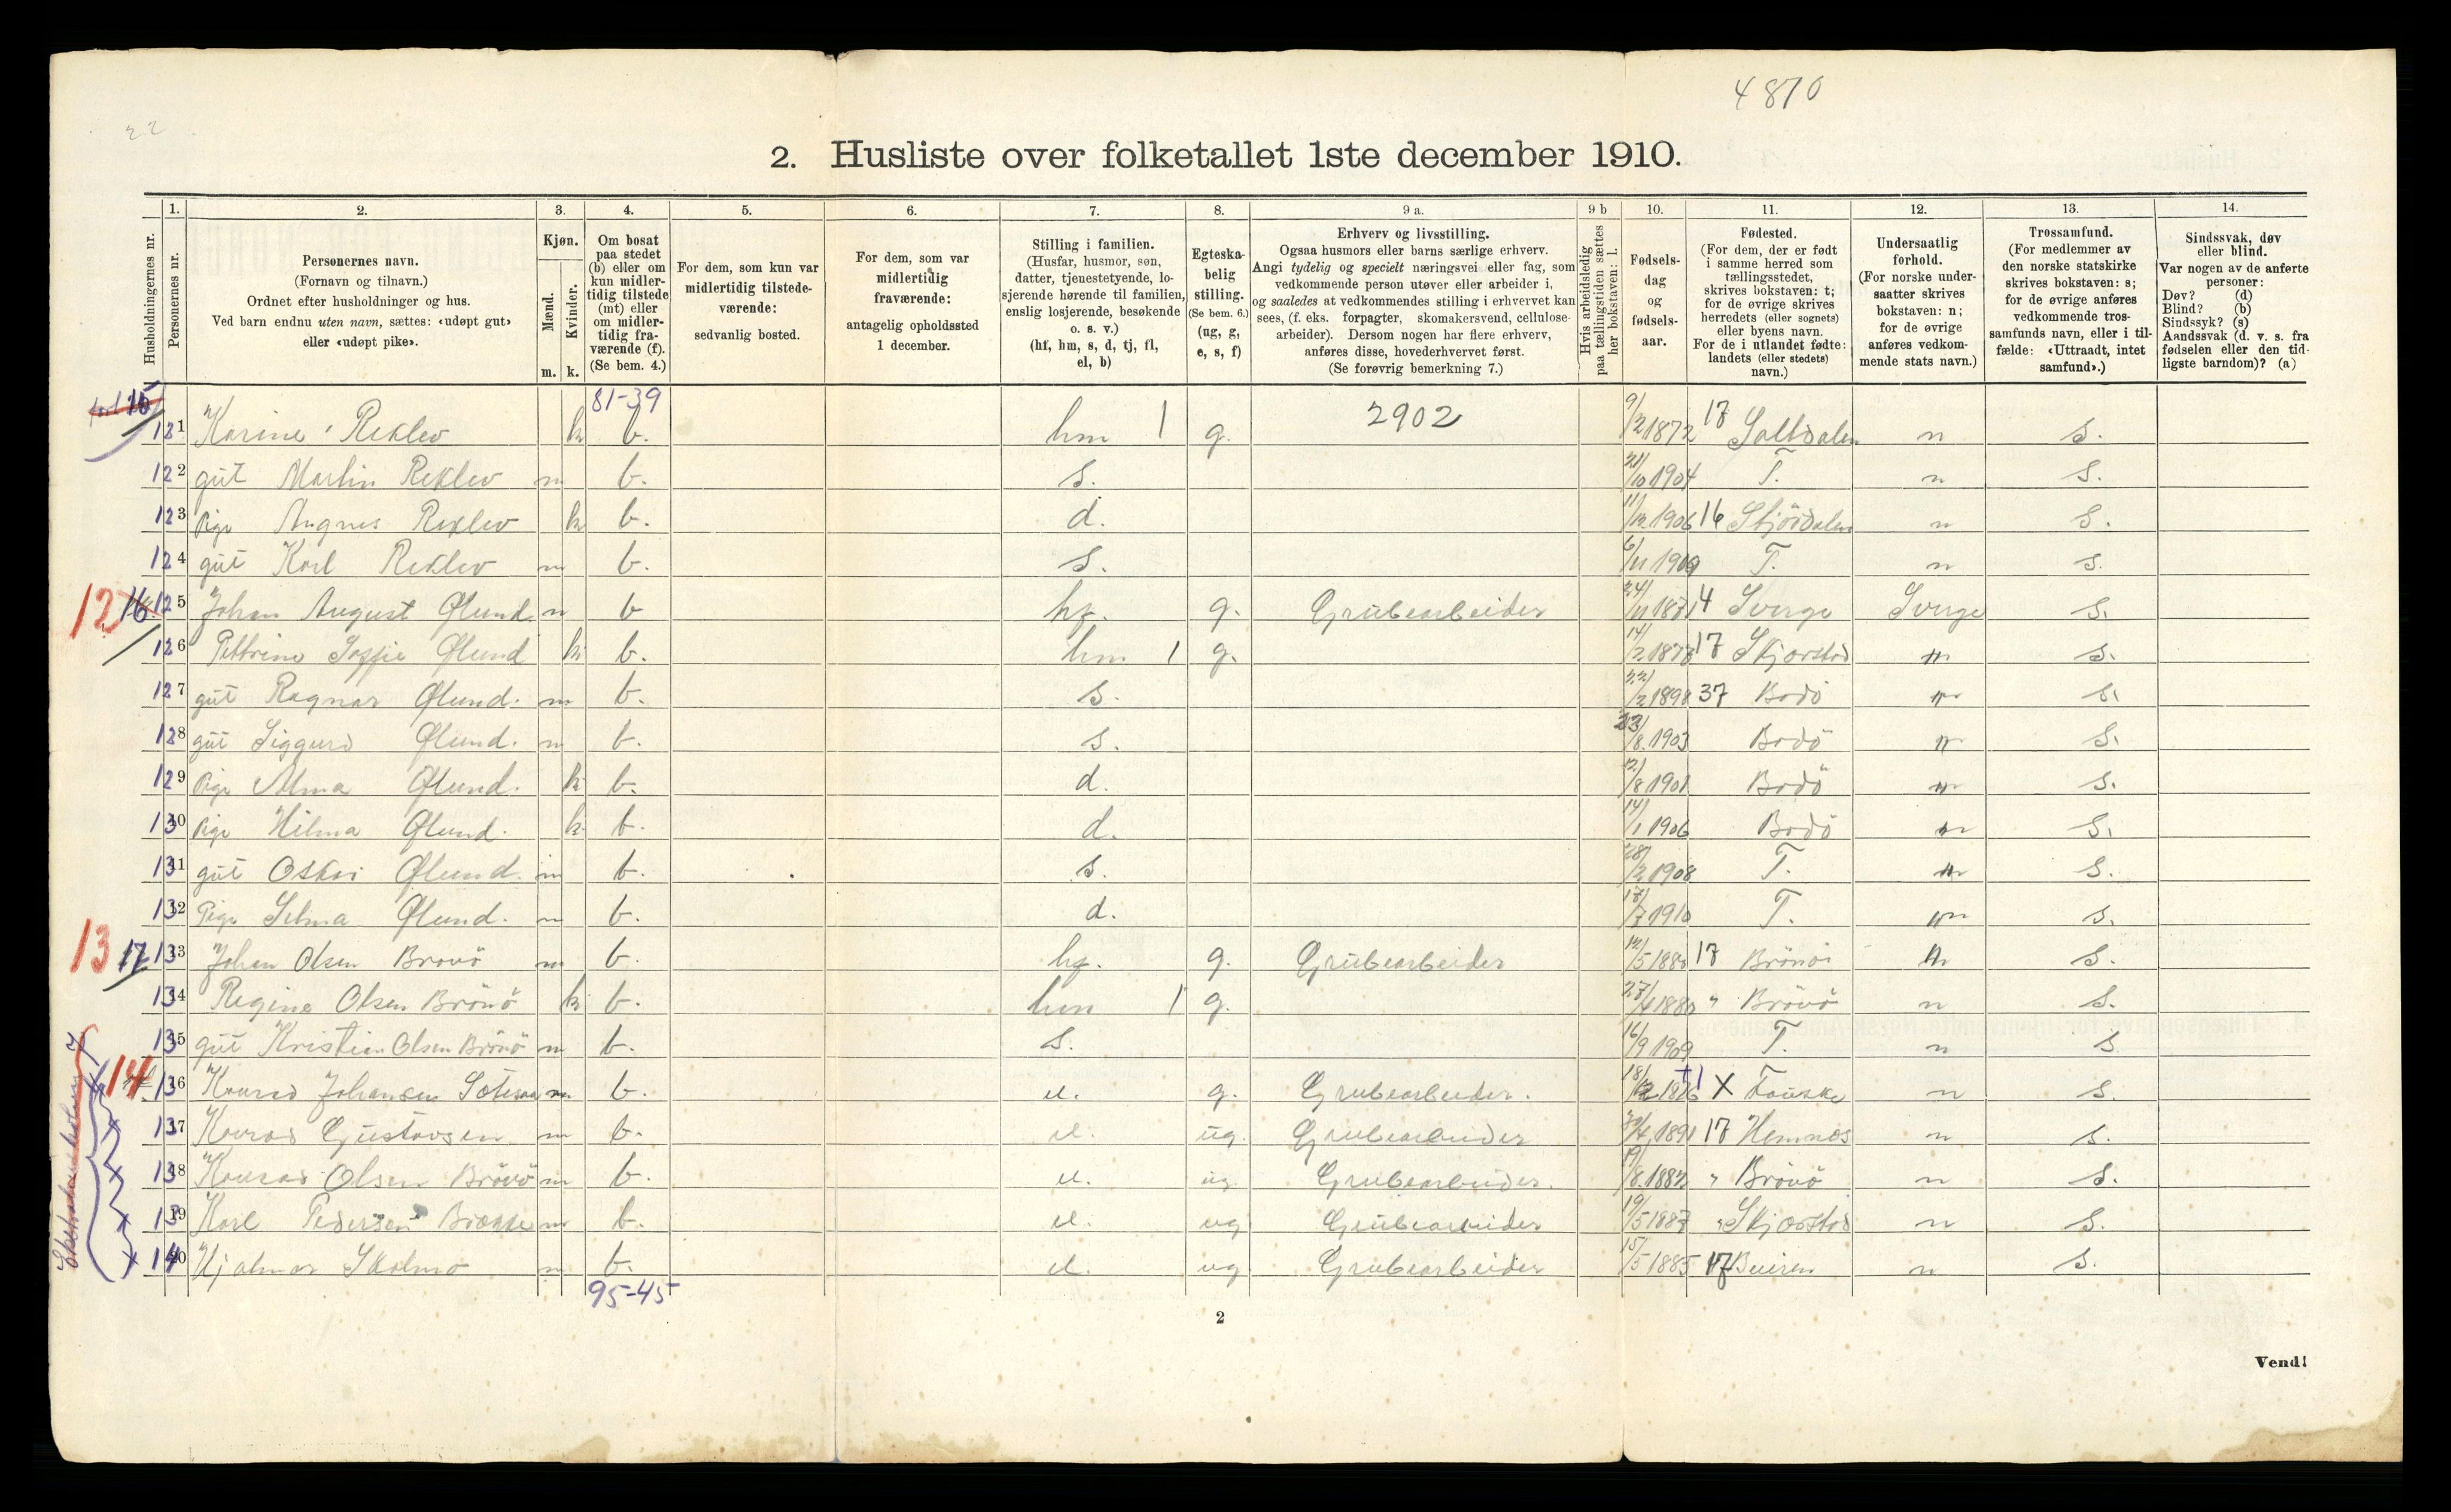 4870
22
2. Husliste over folketallet 1ste december 1910.
Husholdningernes nr.
1. Personernes nr.
2. Personernes navn. (Fornavn og tilnavn.) Ordnet efter husholdninger og hus. Ved barn endnu uten navn, sættes: «udøpt gut» eller «udøpt pike».
3. Kjøn. Mænd. m. Kvinder. k.
4. Om bosat paa stedet (b) eller om kun midlertidig tilstede (mt) eller om midlertidig fraværende (f). (Se bem. 4.)
5. For dem, som kun var midlertidig tilstedeværende: sedvanlig bosted.
6. For dem, som var midlertidig fraværende: antagelig opholdssted 1 december.
7. Stilling i familien. (Husfar, husmor, søn, datter, tjenestetyende, losjerende hørende til familien, enslig losjerende, besøkende o. s. v.) (hf, hm, s, d, tj, fl, el, b)
8. Egteskabelig stilling. (Se bem. 6.) (ug, g, e, s, f)
9 a. Erhverv og livsstilling. Ogsaa husmors eller barns særlige erhverv. Angi tydelig og specielt næringsvei eller fag, som vedkommende person utøver eller arbeider i, og saaledes at vedkommendes stilling i erhvervet kan sees, (f. eks. forpagter, skomakersvend, cellulosearbeider). Dersom nogen har flere erhverv, anføres disse, hovederhvervet først. (Se forøvrig bemerkning 7.)
9 b Hvis arbeidsledig paa tællingstiden sættes her bokstaven: l.
10. Fødselsdag og fødselsaar.
11. Fødested. (For dem, der er født i samme herred som tællingsstedet, skrives bokstaven: t; for de øvrige skrives herredets (eller sognets) eller byens navn. For de i utlandet fødte: landets (eller stedets) navn.)
12. Undersaatlig forhold. (For norske undersaatter skrives bokstaven: n; for de øvrige anføres vedkommende stats navn.)
13. Trossamfund. (For medlemmer av den norske statskirke skrives bokstaven: s; for de øvrige anføres vedkommende trossamfunds navn, eller i tilfælde: «Uttraadt, intet samfund».)
14. Sindssvak, døv eller blind. Var nogen av de anførte personer: Døv? (d) Blind? (b) Sindssyk? (s) Aandssvak (d. v. s. fra fødselen eller den tidligste barndom)? (a)
81-39
15 121 Karine Reklev k b. hm 1 g. 2902 9/2 1872 17 Saltdalen n s.
122 gut Martin Reklev m b. s. 21/10 1904 T. n s.
123 Pige Angnes Reklev k b. d. 1906 16 Stjördalen n s.
124 gut Karl Reklev m b. s. 6/11 1909 T. n s.
12 16 125 Johan August Ølund m b hf. g. Grubearbeider 24/11 1871 4 Sverge Sverge s.
126 Pettrine Soffie Ølund k b. hm 1 g. 14/2 187 17 Skjerstad n s.
127 gut Ragnar Ølund. m b. s. 22/2 1898 37 Bodö n s.
128 gut Siggurd Ølund. m b. s. 23/8. 1903 Bodö n s.
129 Pige Alma Ølund. k b. d. /8 1901 Bodö n s.
130 Pige Hilma Ølund. k b. d. 14/1 1906 Bodö n s.
131 gut Oskar Ølund. m b. s. 28/2 1908 T. n s.
132 Pige Selma Ølund. m b. d. 17/7 1910 T. n s.
13 17 133 Johan Olsen Brönö m b. hf. g. Grubearbeider 12/5 1880 17 Brönöi n s.
134 Regine Olsen Brönö k b. hm 1 g. 27/4 1880 " Brönö n s.
135 gut Kristian Olsen Brönö m b. s. 16/9 1909 T. n s
14 136 Konrad Johansen m b. el. g. Grubearbeider. 18/ 1876 X Fauske n s.
137 Konrad Gustavsen m b. el. ug. Grubearbeider 30/4 1891 17 Hemnes n s.
138 Konrad Olsen Brönö m b. el. ug Grubearbeider. /8. 1882 " Brönö n s.
139 Karl Pedersen m b. el. ug Grubearbeider 19/5 1887 " Skjerstad n s.
140 Hjalmar m b. el. ug Grubearbeider 15/5 1885 17 Beiren n s.
95-45
2
Vend!